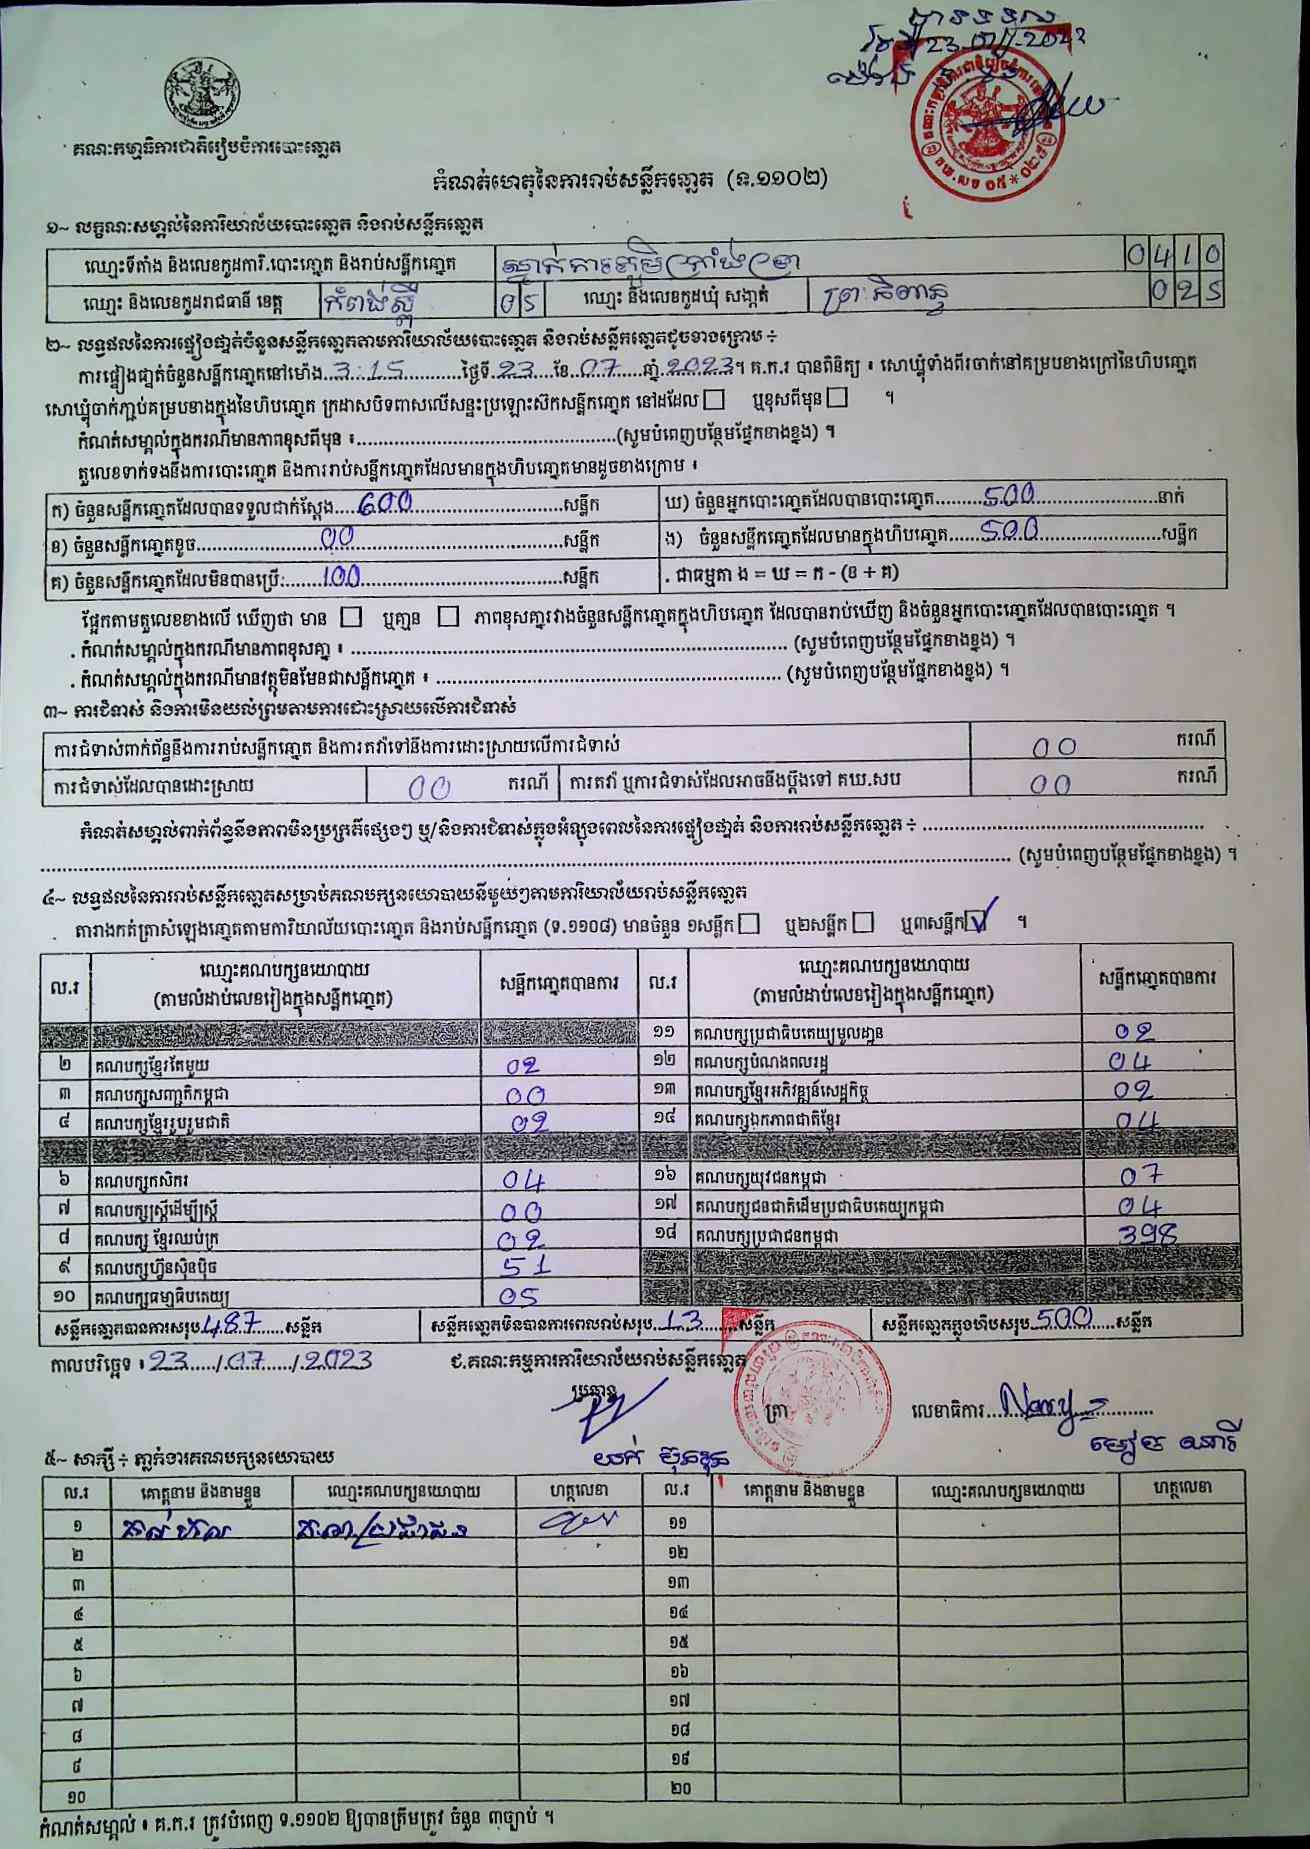 បានទទួល
23-07-2023
គណៈកម្មាធិការជាតិរៀបចំការបោះឆ្នោត
កំណត់ហេតុនៃការរាប់សន្លឹកឆ្នោត (ទ.១១០២)
១~ លក្ខណៈសម្គាល់នៃការិយាល័យបោះឆ្នោត និងរាប់សន្លឹកឆ្នោត
ឈ្មោះទីតាំង និងលេខកូដការិ.បោះឆ្នោត និងរាប់សន្លឹកឆ្នោត 0410
ឈ្មោះ និងលេខកូដរាជធានី ខេត្ត កំពង់ស្ពឺ 05 ឈ្មោះ និងលេខកូដឃុំ សង្កាត់ ព្រះនិពាន្ធ 025
២~ លទ្ធផលនៃការផ្ទៀងផ្ទាត់ចំនួនសន្លឹកឆ្នោតតាមការិយាល័យបោះឆ្នោត និងរាប់សន្លឹកឆ្នោតដូចខាងក្រោម ÷
ការផ្ទៀងផ្ទាត់ចំនួនសន្លឹកឆ្នោតនៅម៉ោង 3:15 ថ្ងៃទី 23 ខែ 07 ឆ្នាំ 2023។ គ.ក.រ បានពិនិត្យ ៖ សោឃ្នុំទាំងពីរចាក់នៅគម្របខាងក្រៅនៃហិបឆ្នោត
សោឃ្នុំចាក់ភ្ជាប់គម្របខាងក្នុងនៃហិបឆ្នោត ក្រដាសបិទពាសលើសន្ទះប្រឡោះស៊កសន្លឹកឆ្នោត នៅដដែល ☐ ឬខុសពីមុន ☐ ។
កំណត់សម្គាល់ក្នុងករណីមានភាពខុសពីមុន ៖ ........ (សូមបំពេញបន្ថែមផ្នែកខាងខ្នង) ។
តួលេខទាក់ទងនឹងការបោះឆ្នោត និងការរាប់សន្លឹកឆ្នោតដែលមានក្នុងហិបឆ្នោតមានដូចខាងក្រោម ៖
ក) ចំនួនសន្លឹកឆ្នោតដែលបានទទួលជាក់ស្តែង 600 សន្លឹក ឃ) ចំនួនអ្នកបោះឆ្នោតដែលបានបោះឆ្នោត 500 នាក់
ខ) ចំនួនសន្លឹកឆ្នោតខូច 00 សន្លឹក ង) ចំនួនសន្លឹកឆ្នោតដែលមានក្នុងហិបឆ្នោត 500 សន្លឹក
គ) ចំនួនសន្លឹកឆ្នោតដែលមិនបានប្រើ: 100 សន្លឹក . ជាធម្មតា ង = ឃ = ក - (ខ + គ)
ផ្អែកតាមតួលេខខាងលើ ឃើញថា មាន ☐ ឬគ្មាន ☐ ភាពខុសគ្នារវាងចំនួនសន្លឹកឆ្នោតក្នុងហិបឆ្នោត ដែលបានរាប់ឃើញ និងចំនួនអ្នកបោះឆ្នោតដែលបានបោះឆ្នោត ។
. កំណត់សម្គាល់ក្នុងករណីមានភាពខុសគ្នា ៖ ........ (សូមបំពេញបន្ថែមផ្នែកខាងខ្នង) ។
. កំណត់សម្គាល់ក្នុងករណីមានវត្ថុមិនមែនជាសន្លឹកឆ្នោត ៖ ........ (សូមបំពេញបន្ថែមផ្នែកខាងខ្នង) ។
៣~ ការជំទាស់ និងការមិនយល់ព្រមតាមការដោះស្រាយលើការជំទាស់
ការជំទាស់ពាក់ព័ន្ធនឹងការរាប់សន្លឹកឆ្នោត និងការតវ៉ាទៅនឹងការដោះស្រាយលើការជំទាស់ 00 ករណី
ការជំទាស់ដែលបានដោះស្រាយ 00 ករណី ការតវ៉ា ឬការជំទាស់ដែលអាចនឹងប្តឹងទៅ គឃ.សប 00 ករណី
កំណត់សម្គាល់ពាក់ព័ន្ធនឹងភាពមិនប្រក្រតីផ្សេងៗ ឬ/និងការជំទាស់ក្នុងអំឡុងពេលនៃការផ្ទៀងផ្ទាត់ និងការរាប់សន្លឹកឆ្នោត ÷ ........
........ (សូមបំពេញបន្ថែមផ្នែកខាងខ្នង) ។
៤~ លទ្ធផលនៃការរាប់សន្លឹកឆ្នោតសម្រាប់គណបក្សនយោបាយនីមួយៗតាមការិយាល័យរាប់សន្លឹកឆ្នោត
តារាងកត់ត្រាសំឡេងឆ្នោតតាមការិយាល័យបោះឆ្នោត និងរាប់សន្លឹកឆ្នោត (ទ.១១០៨) មានចំនួន ១សន្លឹក ☐ ឬ២សន្លឹក ☐ ឬ៣សន្លឹក ☑ ។
ល.រ ឈ្មោះគណបក្សនយោបាយ (តាមលំដាប់លេខរៀងក្នុងសន្លឹកឆ្នោត) សន្លឹកឆ្នោតបានការ ល.រ ឈ្មោះគណបក្សនយោបាយ (តាមលំដាប់លេខរៀងក្នុងសន្លឹកឆ្នោត) សន្លឹកឆ្នោតបានការ
១១ គណបក្សប្រជាធិបតេយ្យមូលដ្ឋាន 02
២ គណបក្សខ្មែរតែមួយ 02 ១២ គណបក្សបំណងពលរដ្ឋ 04
៣ គណបក្សសញ្ជាតិកម្ពុជា 00 ១៣ គណបក្សខ្មែរអភិវឌ្ឍន៍សេដ្ឋកិច្ច 02
៤ គណបក្សខ្មែររួបរួមជាតិ 02 ១៤ គណបក្សឯកភាពជាតិខ្មែរ 04
៦ គណបក្សកសិករ 04 ១៦ គណបក្សយុវជនកម្ពុជា 07
៧ គណបក្សស្ត្រីដើម្បីស្ត្រី 00 ១៧ គណបក្សជនជាតិដើមប្រជាធិបតេយ្យកម្ពុជា 04
៨ គណបក្ស ខ្មែរឈប់ក្រ 02 ១៨ គណបក្សប្រជាជនកម្ពុជា 398
៩ គណបក្សហ៊្វុនស៊ិនប៉ិច 51
១០ គណបក្សធម្មាធិបតេយ្យ 05
សន្លឹកឆ្នោតបានការសរុប 487 សន្លឹក សន្លឹកឆ្នោតមិនបានការពេលរាប់សរុប 13 សន្លឹក សន្លឹកឆ្នោតក្នុងហិបសរុប 500 សន្លឹក
កាលបរិច្ឆេទ ៖ 23 / 07 / 2023 ជ.គណៈកម្មការការិយាល័យរាប់សន្លឹកឆ្នោត
ប្រធាន ត្រា លេខាធិការ
៥~ សាក្សី ÷ ភ្នាក់ងារគណបក្សនយោបាយ
ល.រ គោត្តនាម និងនាមខ្លួន ឈ្មោះគណបក្សនយោបាយ ហត្ថលេខា ល.រ គោត្តនាម និងនាមខ្លួន ឈ្មោះគណបក្សនយោបាយ ហត្ថលេខា
១ ១១
២ ១២
៣ ១៣
៤ ១៤
៥ ១៥
៦ ១៦
៧ ១៧
៨ ១៨
៩ ១៩
១០ ២០
កំណត់សម្គាល់ ៖ គ.ក.រ ត្រូវបំពេញ ទ.១១០២ ឱ្យបានត្រឹមត្រូវ ចំនួន ៣ច្បាប់ ។